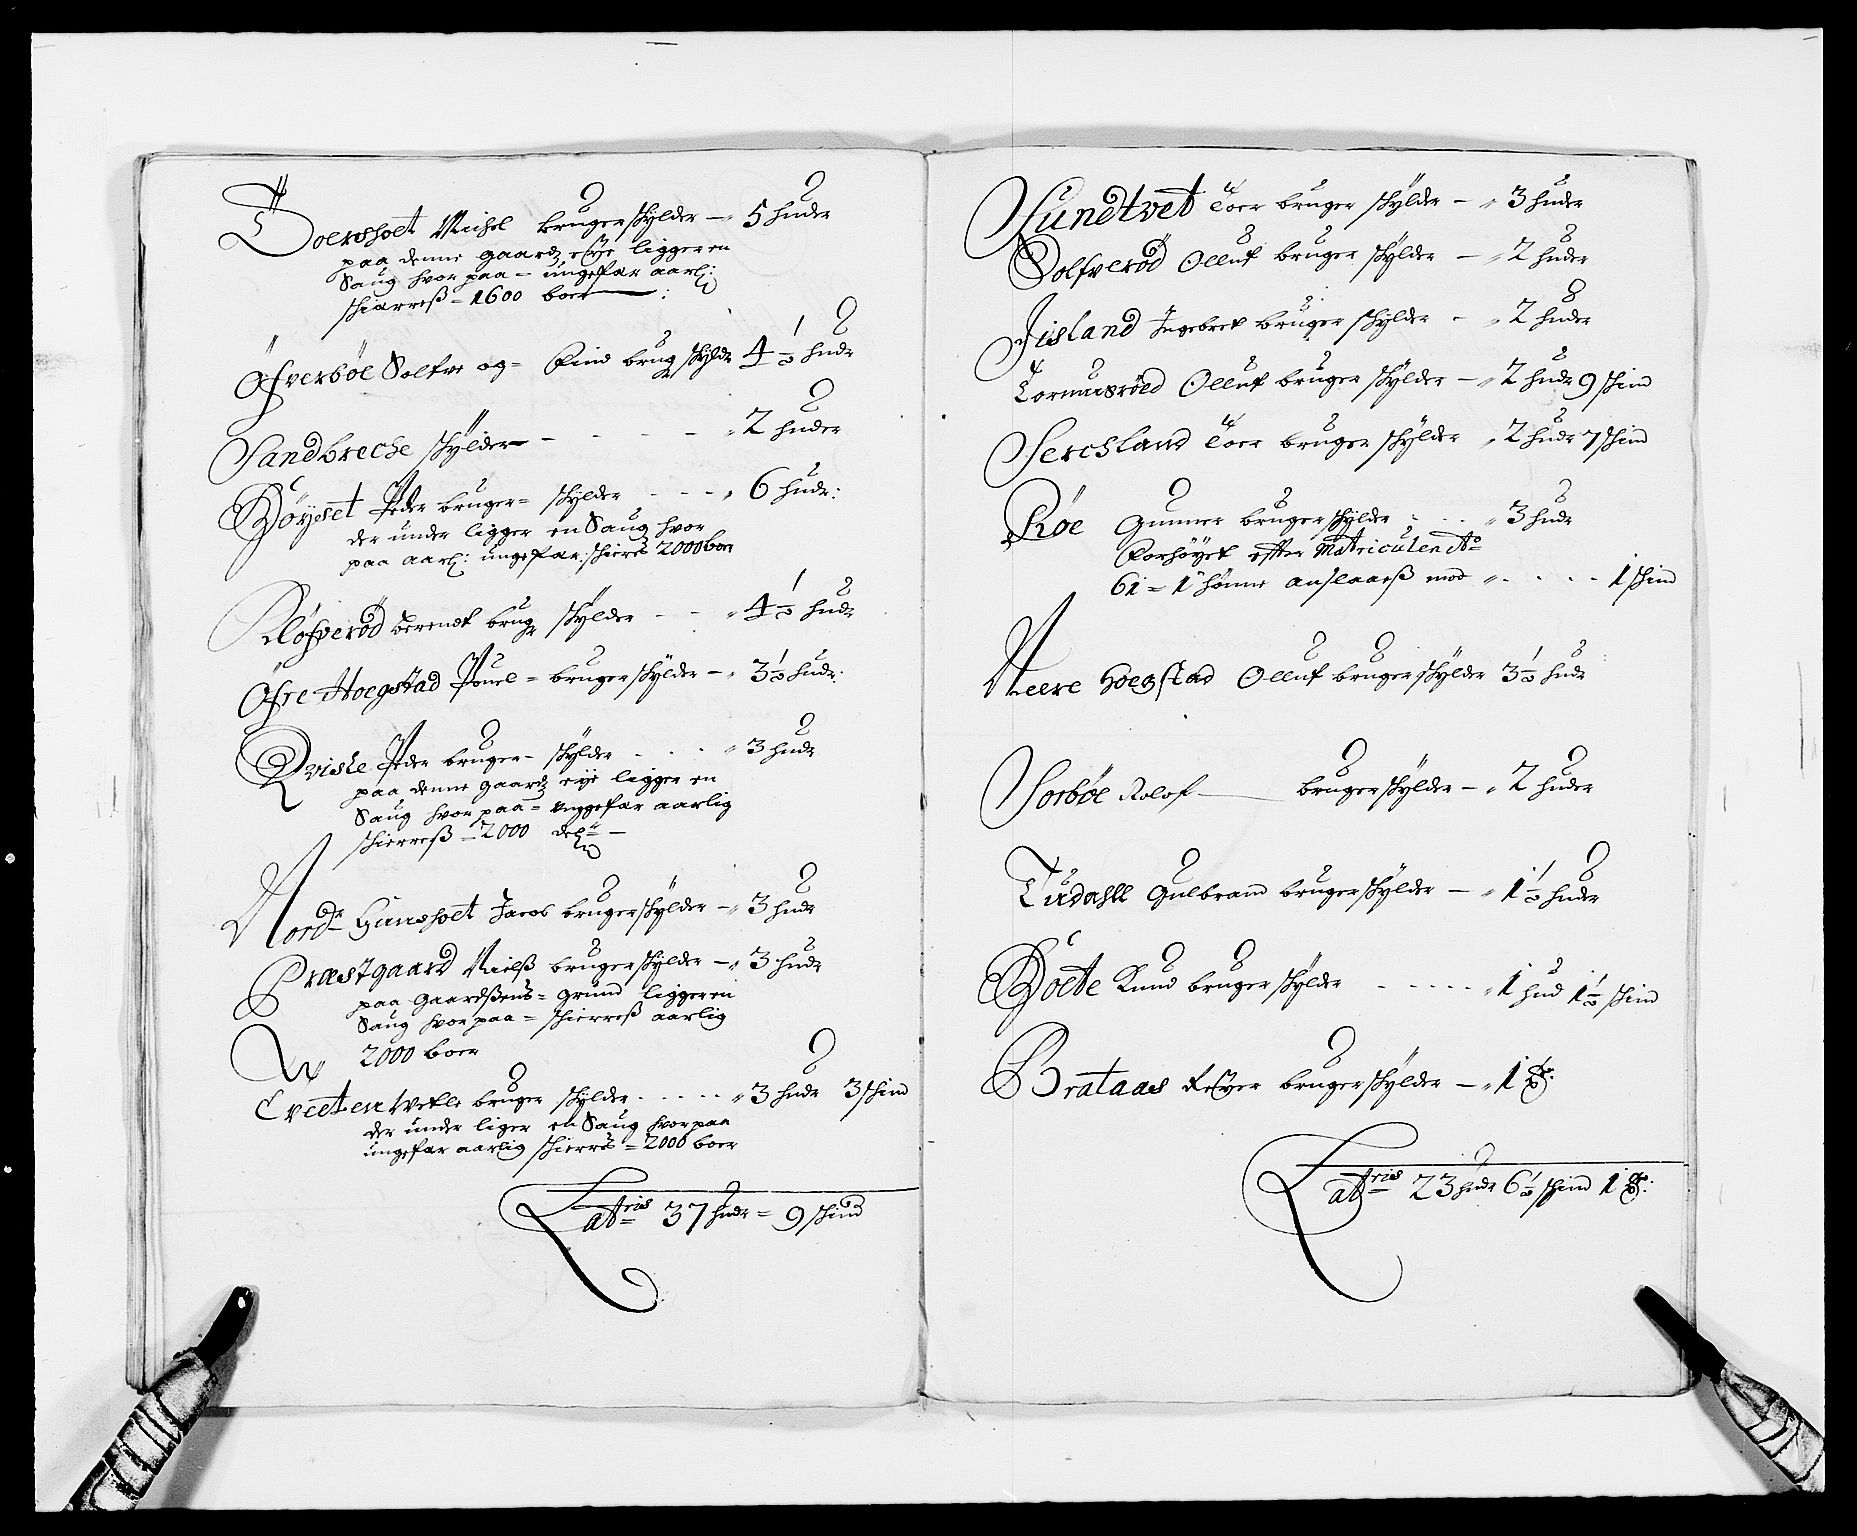 Doenshoet Michel bruger skylder – 5 huder
paa denne gaardz eye ligger en
Saug hvor paa = ungefær aarl:
skiærreß = 1600 boer :
Öfverböe Solfve og = Find brug skyldr 4½ hudr
Sandbreche skylder – 2 huder
Böÿeset Peder bruger = skylder - - - 6 hudr:
der under ligger en Saug hvor
paa aarl: ungefær skieres 2000 boer
Klöfveröd Berendt brugr skÿlder - - 4½ hudr
Öfre Hoegstad Pouel = bruger skÿlder – 3½ hudr:
Qvisle Peder bruger – skÿlder - - - 3 hudr
paa denne gaardz eÿe ligger en
Saug hvor paa = ungefær aarlig
skierreß = 2000 del:
Nordr Hunshoet Jacob bruger skÿlder – 3 hudr
Præstgaard Nielß bruger skÿlder – 3 hudr
paa gaardßens = grund ligger en
Saug hvor paa = skierreß aarlig
2000 boer
Tveeten Vetle bruger skÿlder - - - - - 3 hudr 3 skind
der under liger en Saug hvor paa
ungefær aarlig skierres = 2000 boer
Latris 37 hudr = 9 skind
Sundtvet Toer bruger skÿlder – 3 huder
Solfveröd Olluf bruger skÿlder – 2 huder
Jisland Ingebret bruger skÿlder – 2 huder
Tormusröed Olluf bruger skÿlder – 2 hudr 9 skind
Serchland Toer bruger skÿlder 2 hudr 7 skind
Röe Gunner bruger skÿlder - - - 3 hudr
forhöÿet efter Matriculen Ao
61 = 1 hönne anslaarß mod - - - - 1 skind
Neere Hoegstad Olluf bruger skÿlder 3½ hudr
Sorböe Rolof — bruger skÿlder – 2 huder
Tudahll Gulbrand bruger skÿlder – 1½ huder
Böete Knud bruger skÿlder - - - - - 1 hud 1½ skind
Brataas Reÿer bruger skÿlder – 1
Latris 23 hudr 6½ skind 1